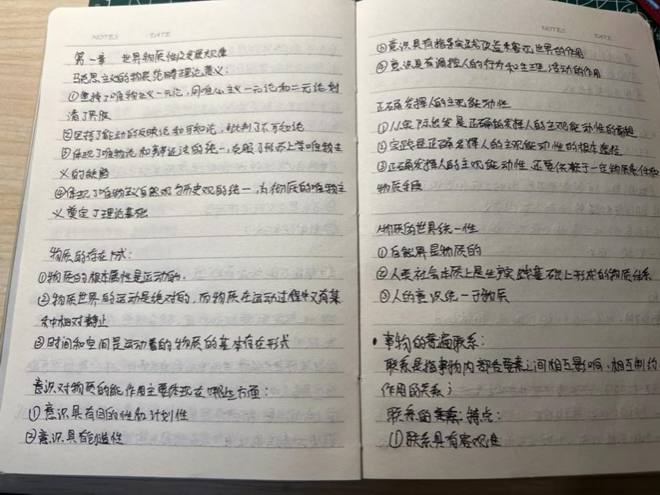 NOTES DATE
第一章 世界物质性及发展规律
马克思主义的物质范畴理论意义:
①坚持了唯物主义一元论,同唯心主义一元论和二元论划
清了界限
②坚持了能动的反映论和可知论,批判了不可知论
③体现了唯物论和辩证法的统一,克服了形而上学唯物主
义的缺陷
④体现了唯物主义自然观与历史观的统一,为彻底的唯物主
义奠定了理论基础
物质的存在形式:
①物质的根本属性是运动的,
②物质世界的运动是绝对的,而物质在运动过程中又有某
种相对静止
③时间和空间是运动着的物质的基本存在形式
意识对物质的能作用主要体现在哪些方面:
①意识具有目的性和计划性
②意识具有创造性
NOTES DATE
③意识具有指导实践改造客观世界的作用
④意识具有调控人的行为和生理活动的作用
正确发挥人的主观能动性
①从实际出发是正确的发挥人的主观能动性的前提
②实践是正确发挥人的主观能动性的根本途径
③正确发挥人的主观能动性,还要依赖于一定物质条件和
物质手段
物质的世界统一性
①自然界是物质的
②人类社会本质上是生产实践基础上形成的物质体系
③人的意识统一于物质
• 事物的普遍联系:
联系是指事物内部各要素之间相互影响、相互制约
作用的关系;
联系的 特点:
①联系具有客观性